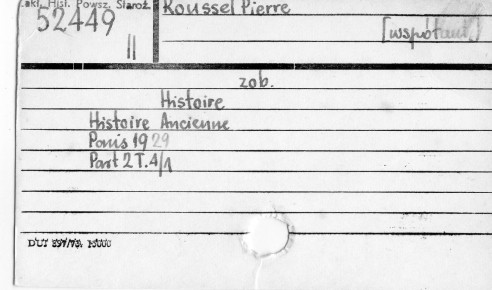 Zakł. Hist. Powsz. Staroż.
52449
II
Roussel Pierre
[współaut.]
zob.
Histoire
Histoire Ancienne
Paris 1929
Part 2 T.4/1